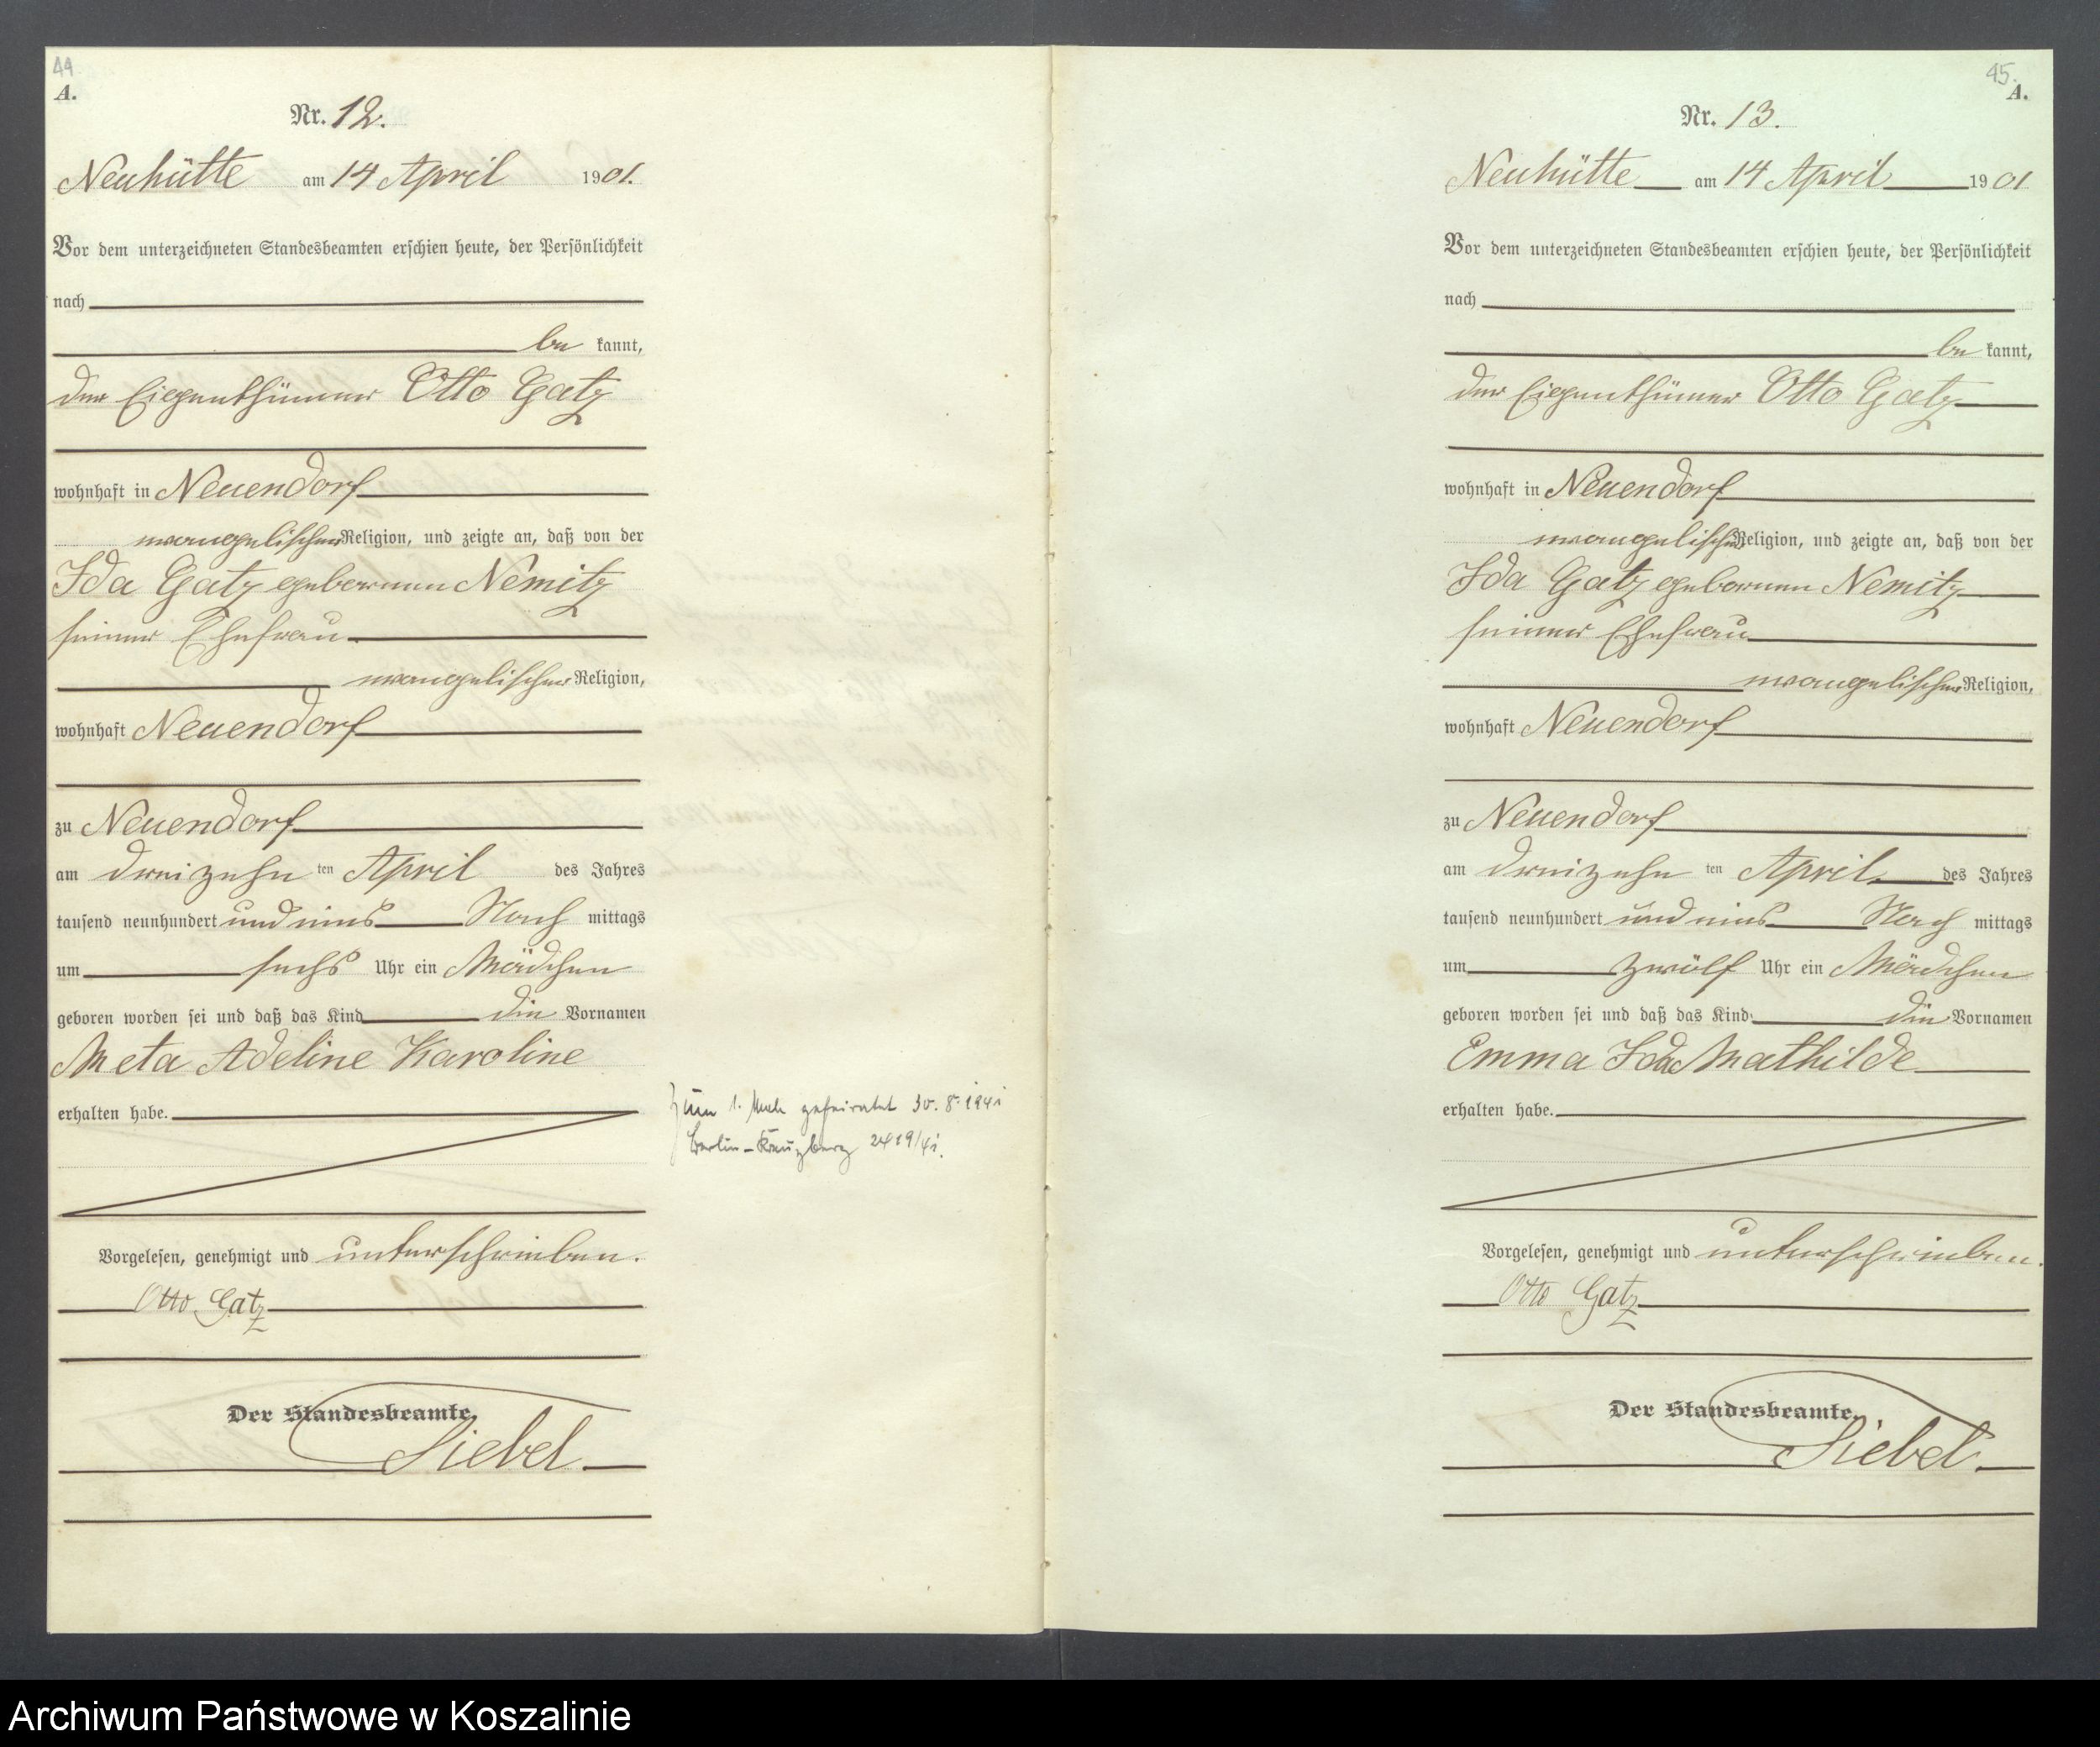 44
A.
Nr. 12.
Neuhütte am 14 April 1901.
Vor dem unterzeichneten Standesbeamten erschien heute, der Persönlichkeit
nach
be kannt,
der Eigenthümer Otto Gatz
wohnhaft in Neuendorf
evangelischer Religion, und zeigte an, daß von der
Ida Gatz geborenen Nemitz
seiner Ehefrau
evangelischer Religion,
wohnhaft Neuendorf
zu Neuendorf
am dreizehn ten April des Jahres
tausend neunhundert und eins Nach mittags
um sechs Uhr ein Mädchen
geboren worden sei und daß das Kind die Vornamen
Meta Adeline Karoline
erhalten habe.
Zum 1. Male geheiratet 30. 8. 1941
Berlin-Kreuzberg 2419/41.
Vorgelesen, genehmigt und unterschrieben.
Otto Gatz
Der Standesbeamte.
Siebel.
45.
A.
Nr. 13.
Neuhütte am 14 April 1901
Vor dem unterzeichneten Standesbeamten erschien heute, der Persönlichkeit
nach
be kannt,
der Eigenthümer Otto Gatz
wohnhaft in Neuendorf
evangelischer Religion, und zeigte an, daß von der
Ida Gatz geborenen Nemitz
seiner Ehefrau
evangelischer Religion,
wohnhaft Neuendorf
zu Neuendorf
am dreizehn ten April des Jahres
tausend neunhundert und eins Nach mittags
um zwölf Uhr ein Mädchen
geboren worden sei und daß das Kind die Vornamen
Emma Ida Mathilde
erhalten habe.
Vorgelesen, genehmigt und unterschrieben.
Otto Gatz
Der Standesbeamte.
Siebel.
Archiwum Państwowe w Koszalinie